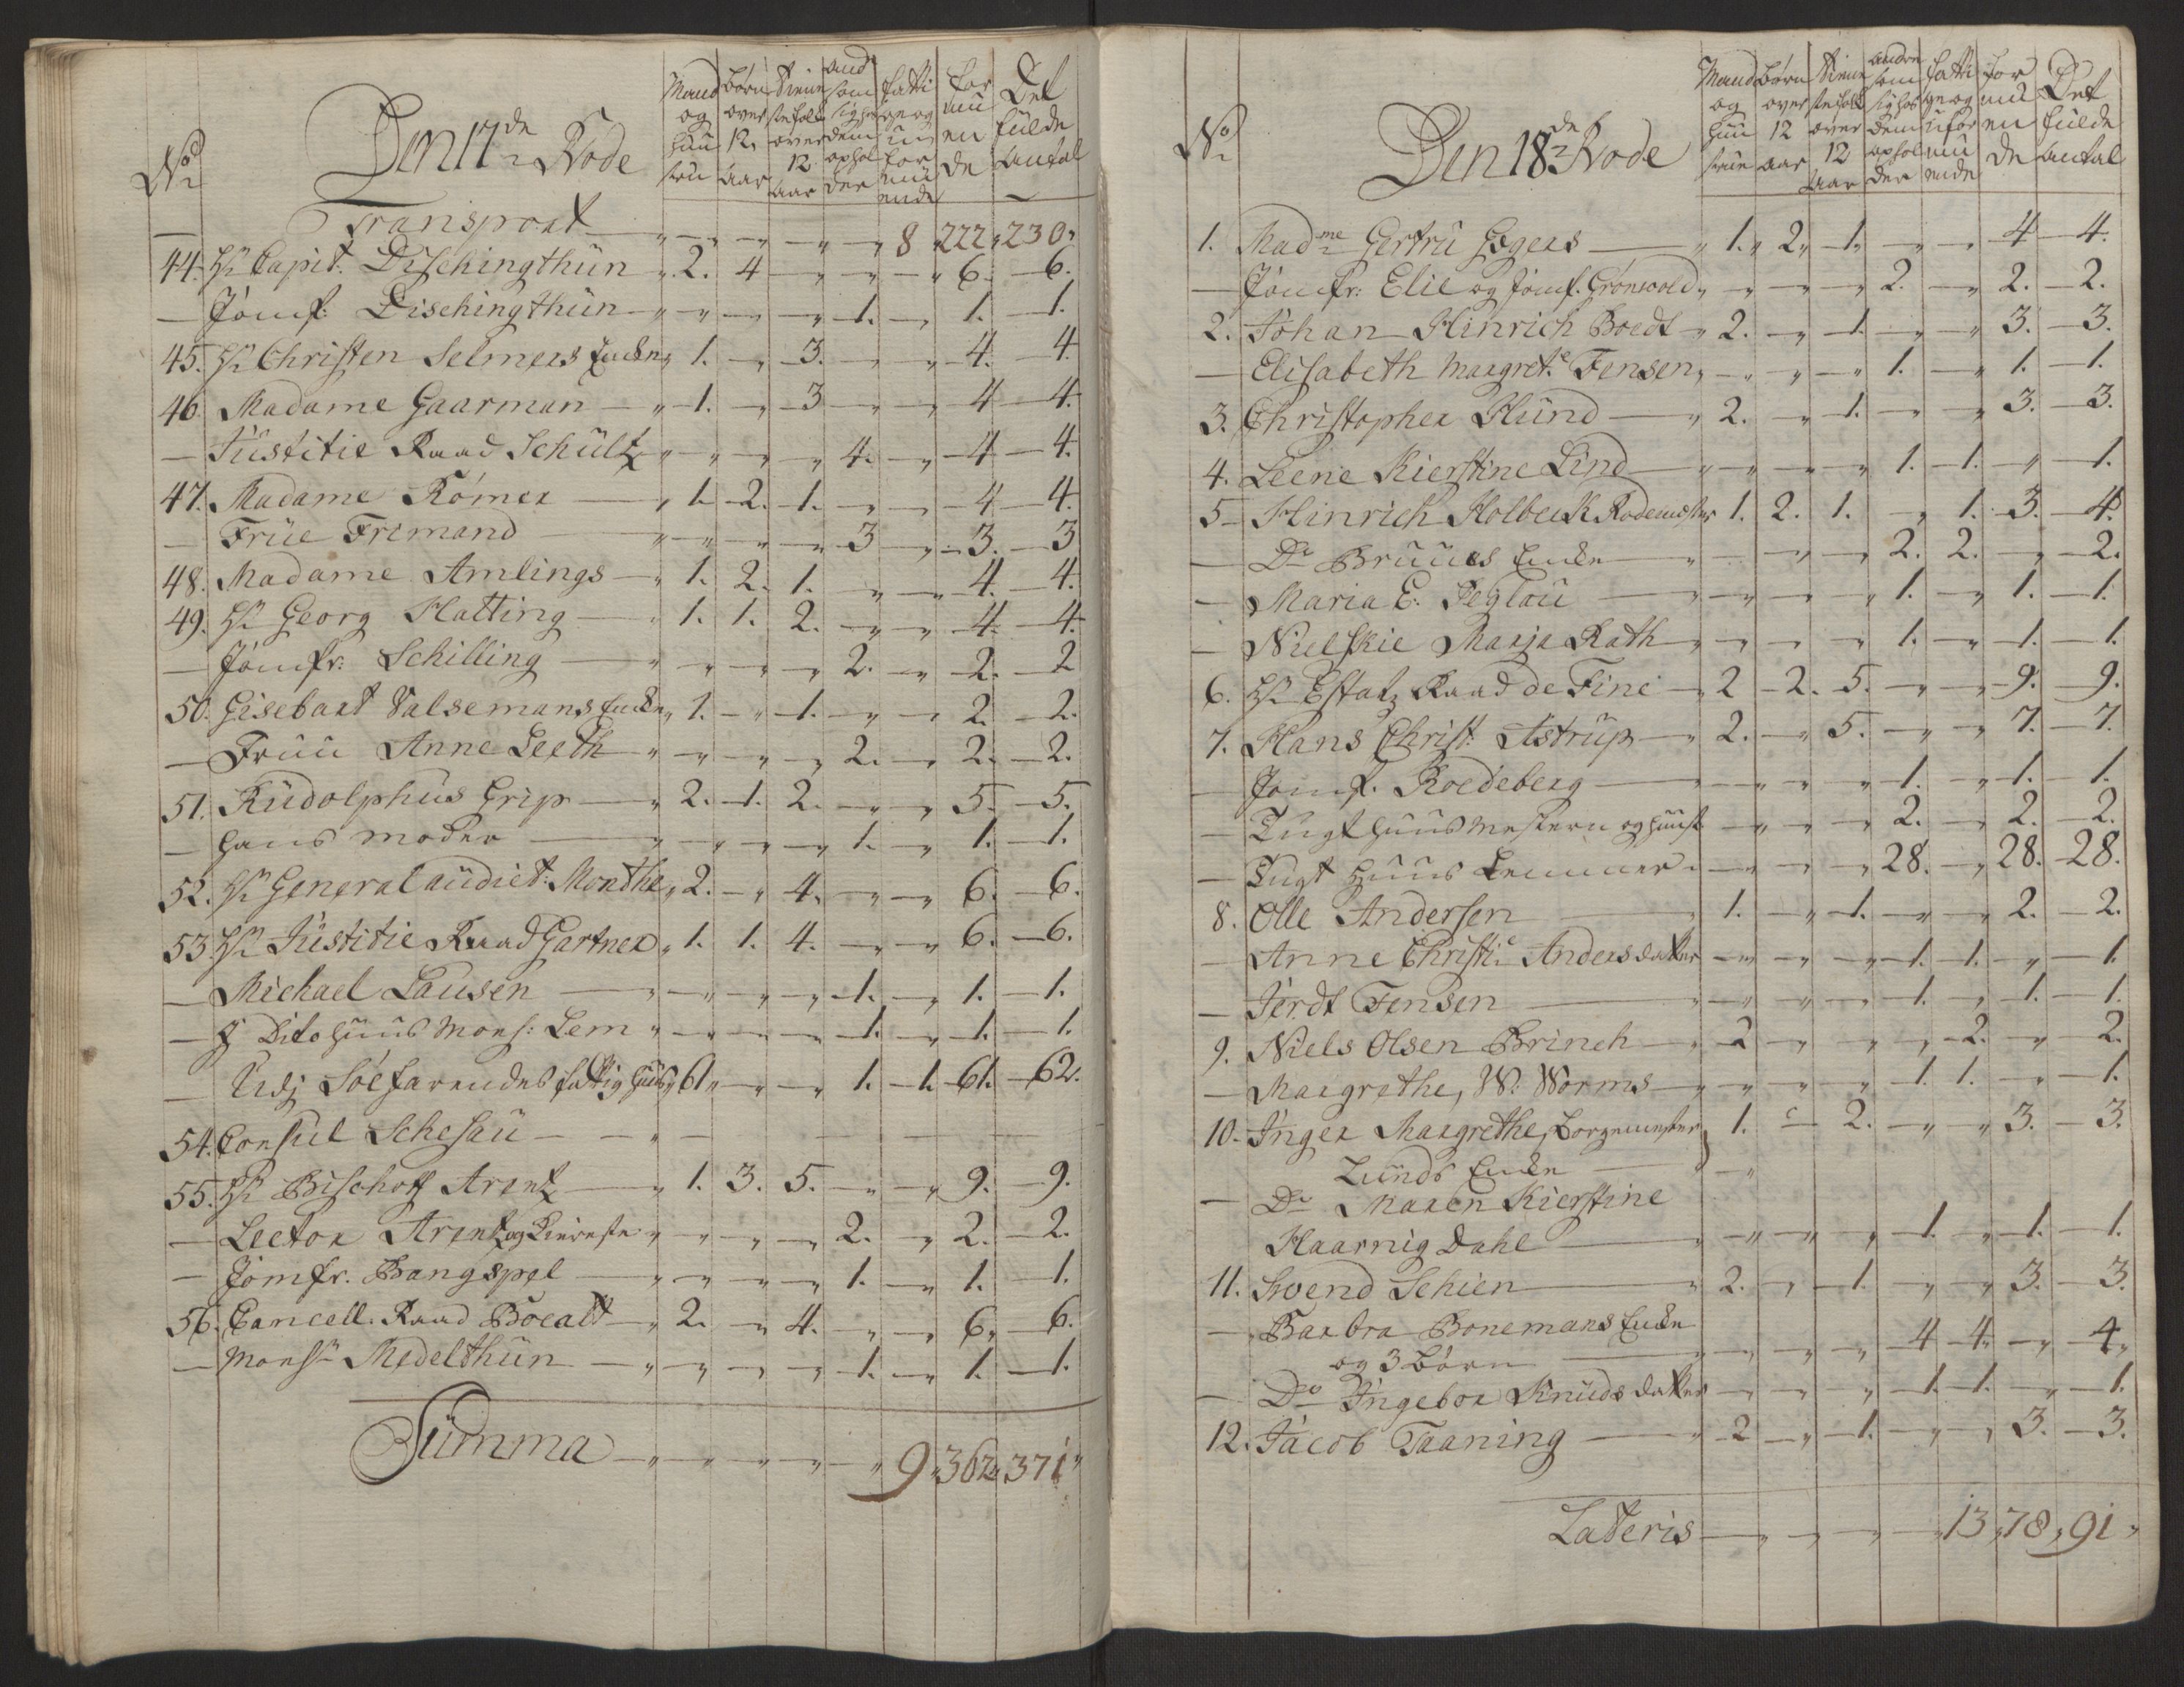 No
Den 17de Rode
Mand og Huu stru
Børn over 12 aar
Tiene ste folk over 12 aar
and som sig hos dem ophol der
fatti ge og u for mu ende
for mu en de
Det fulde Antal
— Transport — „ — „ — „ — „ — 8 „ 222 „ 230 „
44. Hr Capit: Dischingthun „ 2. 4 — „ — „ — „ 6. — 6.
— Jomf: Dischingthun — „ — „ — „ 1. — „ 1. — 1.
45. Hr Christen Selmers Encke „ 1. — „ 3. — „ — „ 4. — 4.
46. Madame Gaarman — „ 1. — „ 3 — „ — „ 4 — 4.
— Justitie Raad Schultz „ — „ — „ — „ 4. — „ 4 — 4.
47. Madame Rømer — „ 1. 2. 1. — „ — „ 4 — 4.
— Frue Fremand — „ — „ — „ 3 — „ 3. — 3
48. Madame Amlings — „ 1. 2. 1. — „ — „ 4. — 4.
49. Hr Georg Hatting — „ 1. 1. 2. — „ — „ 4. — 4.
— Jomfr: Schilling — „ — „ — „ 2. — „ 2. — 2
50. Gisebart Valsemans Encke „ 1. — „ 1. — „ — „ 2. — 2.
— Fruu Anne Leeth „ — „ — „ — „ 2. — „ 2. — 2.
51. Rudolphus Grip — „ 2. 1. 2. — „ — „ 5. — 5.
— hans moder — „ — „ — „ 1. — „ 1. — 1.
52. Hr General audiet: Monthe „ 2. — „ 4. — „ — „ 6. — 6.
53. Hr Justitie Raad Gartner „ 1. 1. 4. — „ — „ 6. — 6.
— Michael Lausen — „ — „ — „ 1. — „ 1. — 1.
— J Dito Huus Mons: Lem „ — „ — „ 1. — „ 1. — 1.
— Udj Søefarendes fattig Huus „ 61 „ — „ — „ 1. 1. 61. — 62.
54. Consul Schesau — — „ — — — — —
55. Hr Bischoff Arentz — „ 1. 3. 5. — „ — „ 9. — 9.
— Lector Arentz og Tieneste „ — „ — „ 2. — „ 2. — 2.
— Jomfr. Bangspel — „ — „ — „ 1. — „ 1. — 1.
56. Cancell. Raad Bøcalt — „ 2. — „ 4. — „ — „ 6. — 6.
— Monsr Medelthun — „ — „ — „ 1. — „ 1. — 1.
Summa — „ — „ — „ — „ 9 „ 362 „ 371 „
No
Den 18de Rode
Mand og Huu strue
Børn over 12 aar
Tiene ste folk over 12 aar
andre som sig hos dem ophol der
fatti ge og u for mu ende
for mu en de
Det fulde Antal
1. Madme Gertru Gogers — „ 1. „ 2 „ 1. — „ — „ 4 — 4.
— Jomfr: Elie og Jomf. Grønwold „ — „ — „ 2. — „ 2. — 2.
2. Johan Hinrich Boedt „ 2. — „ 1. — „ — „ 3. — 3.
— Elisabeth Margret:e Jensen „ — „ — „ 1. — „ 1. — 1.
3. Christopher Hund — „ 2. — „ 1. — „ — „ 3. — 3.
4. Leene Kierstine Lind — „ — „ — „ 1. — 1. — „ 1.
5 — Hinrich Holbeck Rodemester 1. 2. 1. — „ 1. 3. — 4.
— Do Bruuns Encke — „ — „ — 2. 2. — „ 2.
— Maria E. Peglau — „ — „ — „ 1. — „ 1. — 1.
— Nielskie Maria Rath — „ — „ — „ 1. — „ 1. — 1.
6. Hr Estatz Raad de Fine — „ 2 — 2. 5. — „ — 9. — 9.
7. Hans Christ: Astrup — „ 2. — „ 5. — „ — „ 7. — 7.
— Jomf. Roedeberg — „ — „ — „ 1. — „ 1. — 1.
— Tugt Huus Mestern og hust — „ — „ — 2. — „ 2. — 2.
— Tugt Huus Lemmer „ — „ — „ 28. — „ 28. — 28.
8. Olle Andersen — „ 1. — „ 1. — „ — „ 2. — 2.
— Anne Christi:e Andersdatter — „ — „ 1. 1. — „ 1.
— Jerdt Jensen — „ — „ — „ 1. — „ 1. — 1.
9. Niels Olsen Brinch — „ 2 — „ — „ 2. — „ 2.
— Margrethe, W: Worms — „ — „ — „ 1. 1. — „ 1.
10. Inger Margrethe, Borgemester 1. — 2. — „ — „ 3. — 3.
Lunds Encke — „ — „
— Do Maren Kierstine
Haarnig Dahl — „ — „ — „ 1. — „ 1. — 1.
11. Svend Schien — „ 2. — „ 1. — „ — „ 3. — 3.
— Barbra Bonemans Encke
og 3 Børn — „ — „ — „ 4 4. — „ 4.
— Do Ingebor Knudsdatter — „ — „ 1. 1. — „ 1.
12. Jacob Taaning — „ 2 — „ 1. — „ — „ 3. — 3.
Lateris — „ — „ — „ — 13 „ 78 „ 91 „